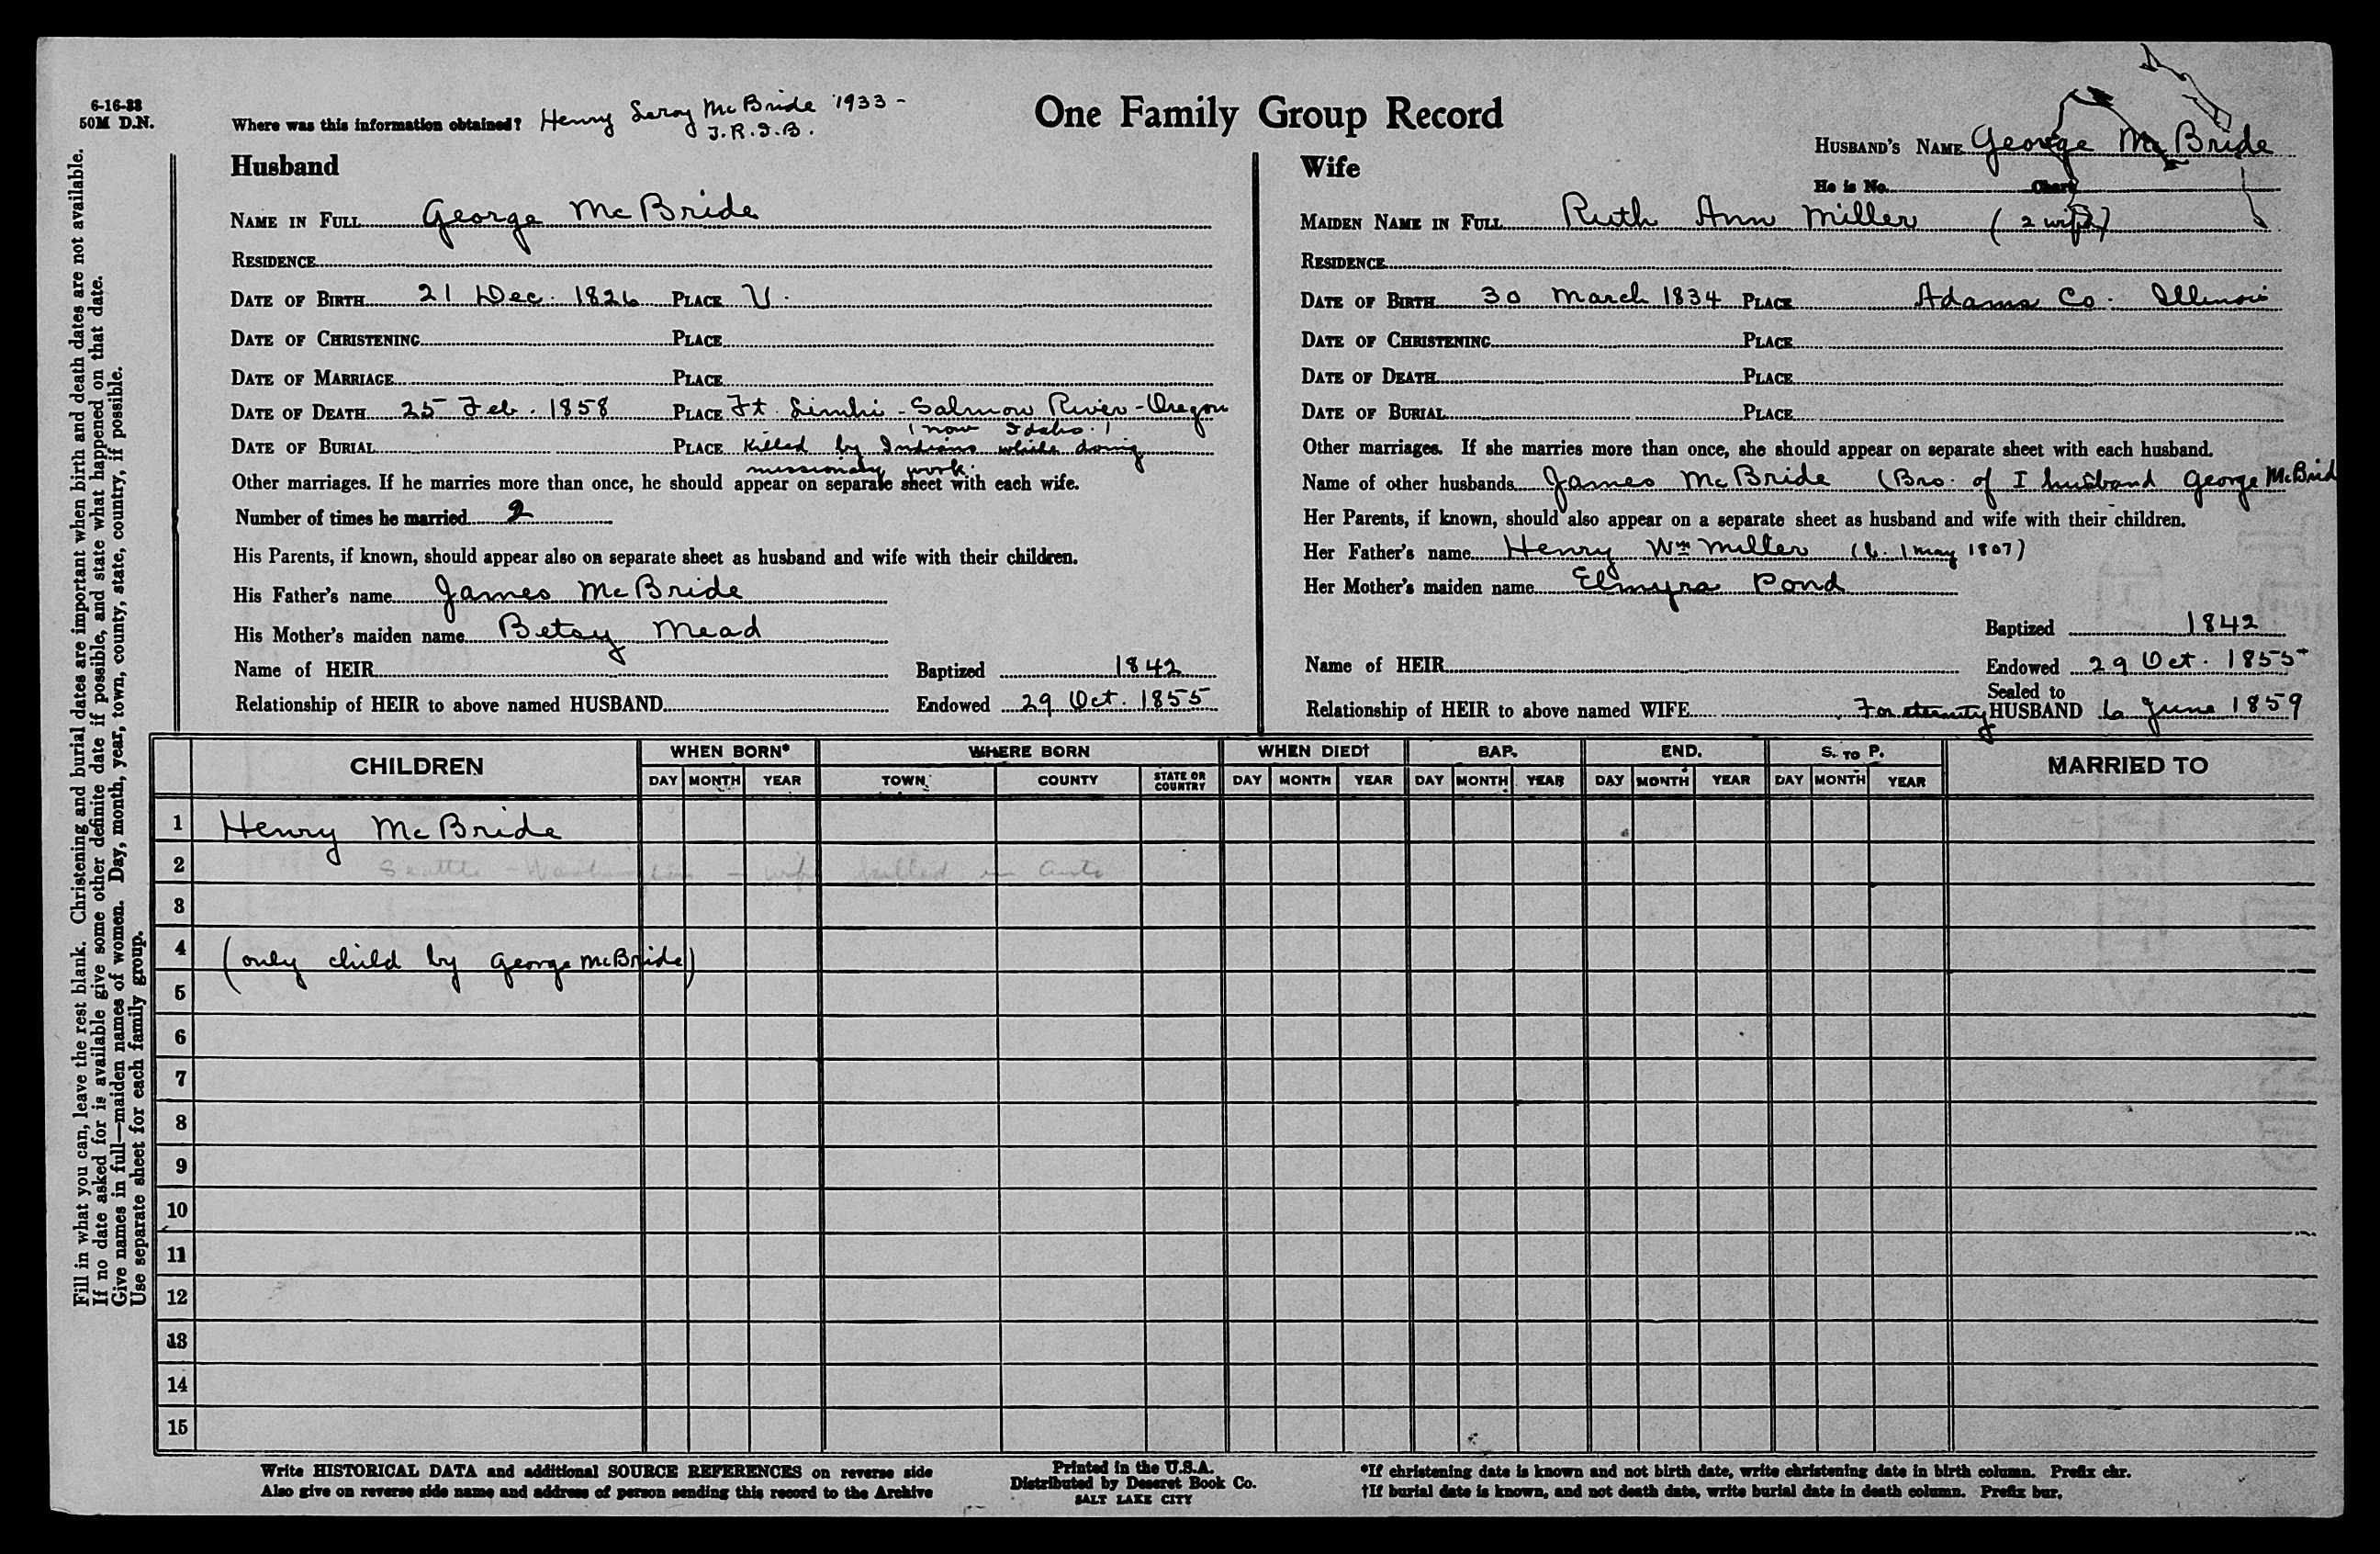 6-16-33
50M D.N.
Where was this information obtained? Henry Leroy McBride 1933 -
T.R.I.B.
One Family Group Record
HUSBAND'S NAME George McBride
He is No. Chart
Husband
NAME IN FULL George McBride
RESIDENCE
DATE OF BIRTH 21 Dec. 1826 PLACE V.
DATE OF CHRISTENING PLACE
DATE OF MARRIAGE PLACE
DATE OF DEATH 25 Feb. 1858 PLACE Ft. Limhi - Salmon River - Oregon
(now Idaho.)
DATE OF BURIAL PLACE Killed by Indians while doing
missionary work.
Other marriages. If he marries more than once, he should appear on separate sheet with each wife.
Number of times he married 2
His Parents, if known, should appear also on separate sheet as husband and wife with their children.
His Father's name James McBride
His Mother's maiden name Betsy Mead
Name of HEIR Baptized 1842
Relationship of HEIR to above named HUSBAND Endowed 29 Oct. 1855
Wife
MAIDEN NAME IN FULL Ruth Ann Miller (2 wife)
RESIDENCE
DATE OF BIRTH 30 March 1834 PLACE Adams Co. Illinois
DATE OF CHRISTENING PLACE
DATE OF DEATH PLACE
DATE OF BURIAL PLACE
Other marriages. If she marries more than once, she should appear on separate sheet with each husband.
Name of other husbands James McBride (Bro. of I husband George McBrid
Her Parents, if known, should also appear on a separate sheet as husband and wife with their children.
Her Father's name Henry Wm Miller (b. 1 May 1807)
Her Mother's maiden name Elmyra Pond
Baptized 1842
Name of HEIR Endowed 29 Oct. 1855
Sealed to
Relationship of HEIR to above named WIFE For eternity HUSBAND 6 June 1859
CHILDREN WHEN BORN* WHERE BORN WHEN DIED† BAP. END. S. TO P. MARRIED TO
DAY MONTH YEAR TOWN COUNTY STATE OR COUNTRY DAY MONTH YEAR DAY MONTH YEAR DAY MONTH YEAR DAY MONTH YEAR
1 Henry McBride
2 Seattle - Washington - wife killed in auto
3
4 (only child by George McBride)
5
6
7
8
9
10
11
12
13
14
15
Fill in what you can, leave the rest blank. Christening and burial dates are important when birth and death dates are not available.
If no date asked for is available give some other definite date if possible, and state what happened on that date.
Give names in full—maiden names of women. Day, month, year, town, county, state, country, if possible.
Use separate sheet for each family group.
Write HISTORICAL DATA and additional SOURCE REFERENCES on reverse side
Also give on reverse side name and address of person sending this record to the Archive
Printed in the U.S.A.
Distributed by Deseret Book Co.
SALT LAKE CITY
*If christening date is known and not birth date, write christening date in birth column. Prefix chr.
†If burial date is known, and not death date, write burial date in death column. Prefix bur.